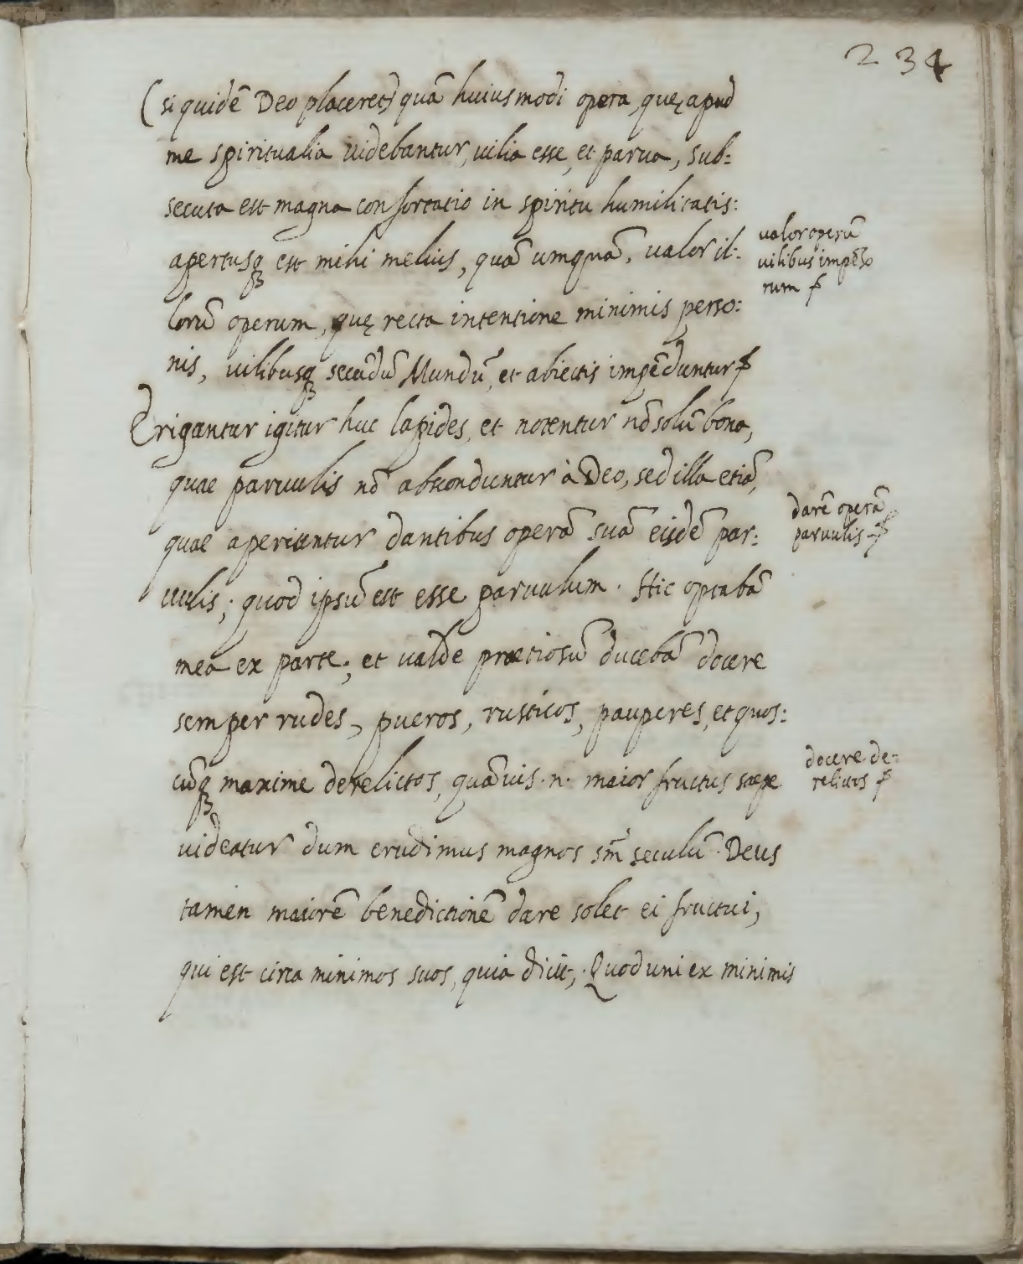 234
(si quidē Deo placeret) quā huiusmodi opera, quę apud
me spiritualia videbantur, uilia esse, et parua, sub:
secuta est magna confortatio in spiritu humilitatis:
apertusq́ est mihi melius, quā umquā, valor il:
lorū operum, quę recta intentione minimis perso:
nis, vilibusq́ secūdū Mundū, et abiectis impēduntur
Erigantur igitur huc lapides, et notentur nō solū bona,
quae paruulis nō absconduntur à Deo, sed illa etiā,
quae aperiuntur dantibus operā suā eisdē par:
uulis; quod ipsū est esse paruulum. Hic optabā
mea ex parte; et valde praetiosū ducebā docere
semper rudes, pueros, rusticos, pauperes, et quos:
cūq́ maxime derelictos, quāuis .n. maior fructus saepe
uideatur dum erudimus magnos sm̄ seculū. Deus
tamen maiorē benedictionē dare solet ei fructui,
qui est circa minimos suos, quia dicit; Quod uni ex minimis
valor operū
vilibus impēso
rum
darē operā
paruulis
docere de:
relictos